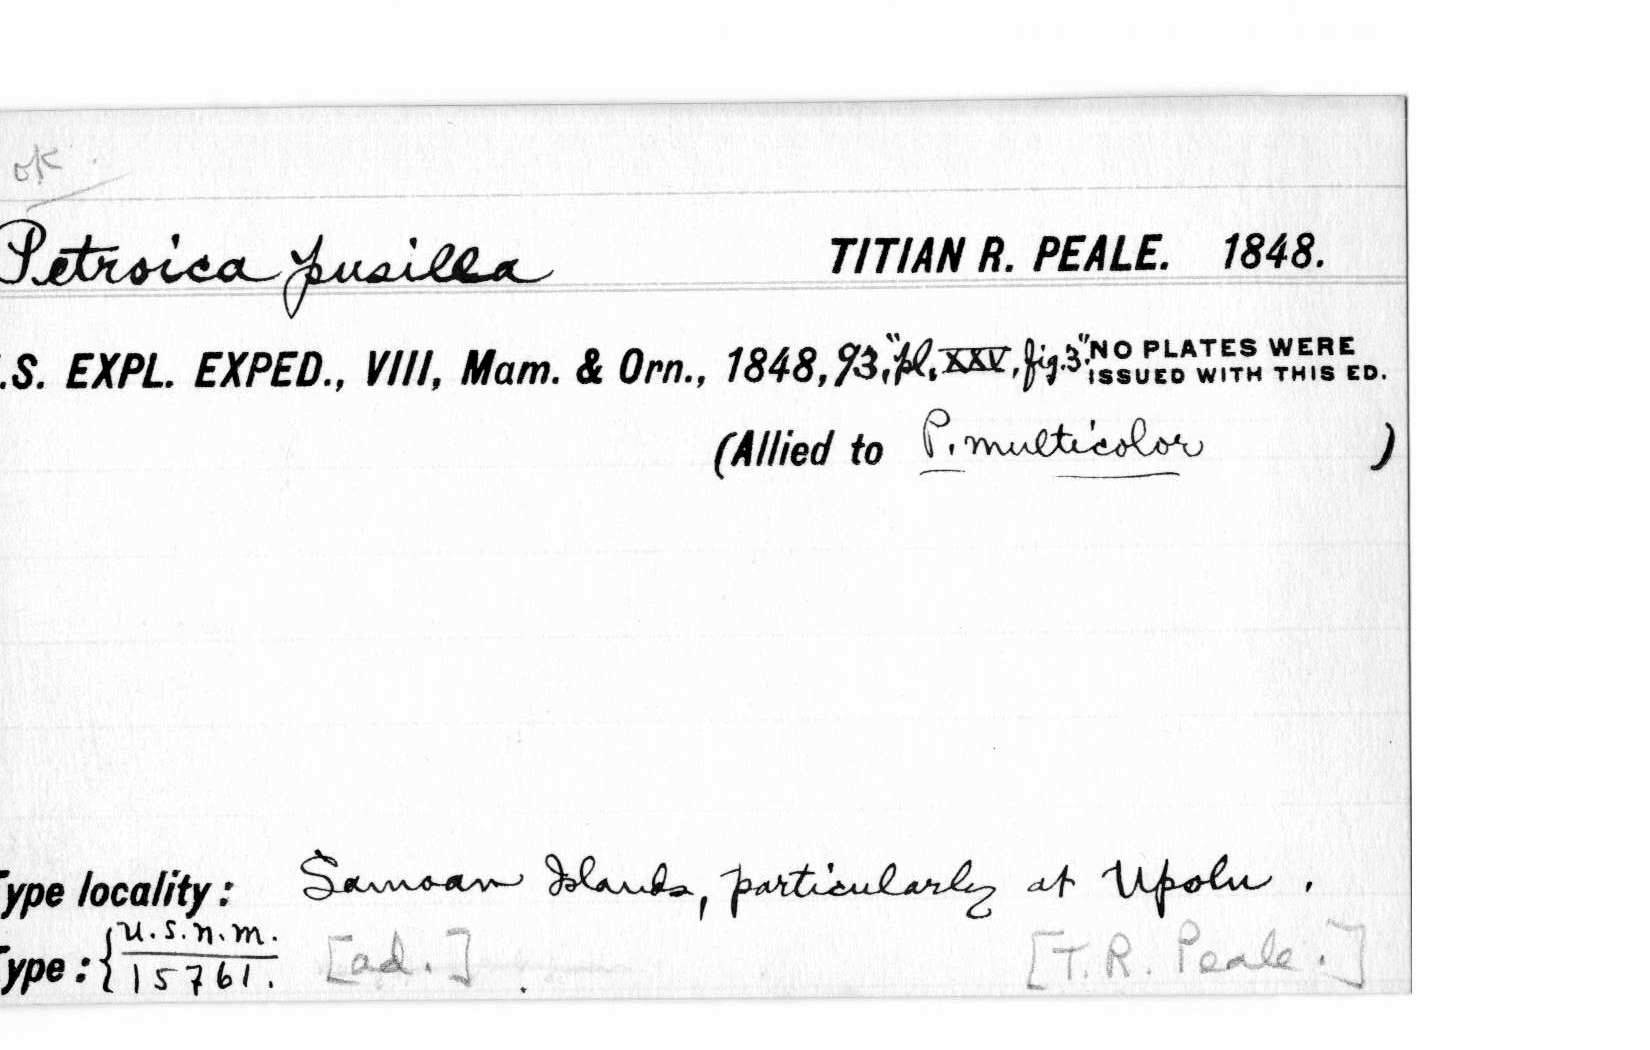 ok
Petroica pusilla TITIAN R. PEALE. 1848.
.S. EXPL. EXPED., VIII, Mam. & Orn., 1848, 93, "pl. XXV, fig. 3" NO PLATES WERE
ISSUED WITH THIS ED.
(Allied to P. multicolor )
Type locality: Samoan Islands, particularly at Upolu.
Type: { U.S.N.M. [ad.] [T. R. Peale.]
15761.